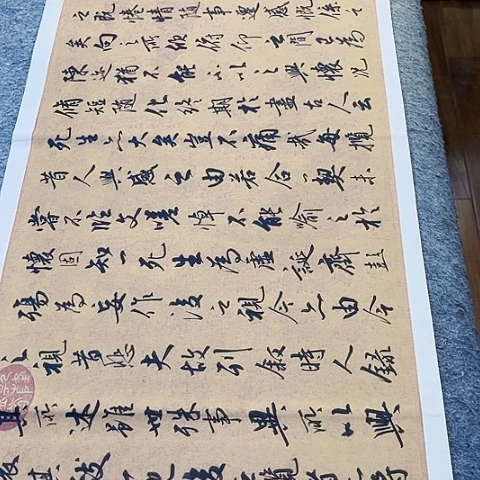 之既倦情隨事遷感慨係之
矣向之所欣俯仰之間已為
陳迹猶不能不以之興懷况
脩短隨化終期於盡古人云
死生亦大矣豈不痛哉每攬
昔人興感之由若合一契未
嘗不臨文嗟悼不能喻之於
懷固知一死生為虛誕齊彭
殤為妄作後之視今亦由今
之視昔悲夫故列叙時人錄
其所述雖世殊事異所以興
其致一也後之覽者